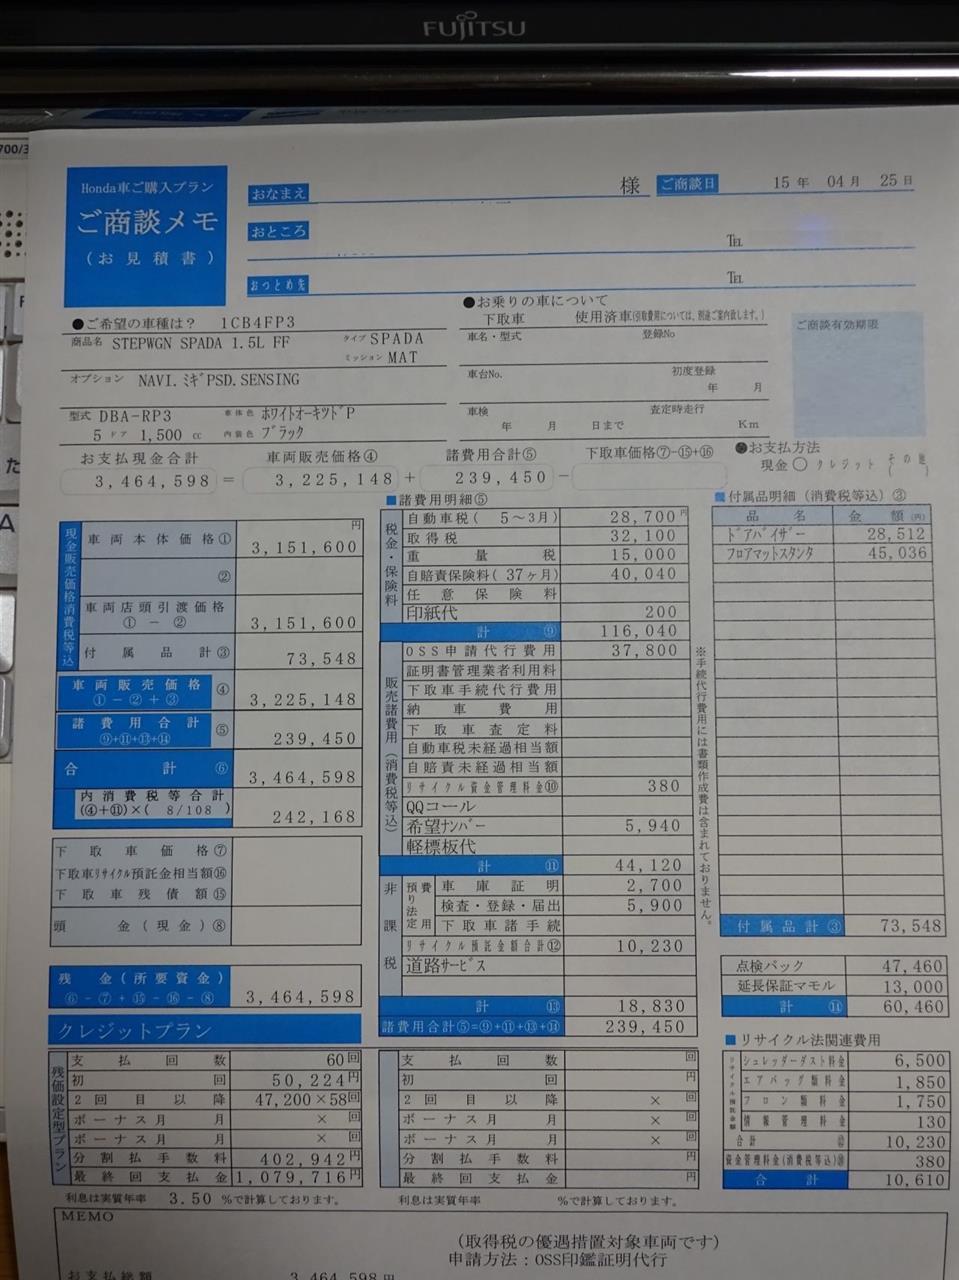 FUJITSU
700/3
Honda車ご購入プラン
ご商談メモ
(お見積書)
おなまえ 様
ご商談日 15年 04月 25日
おところ
TEL
おつとめ先 TEL
●ご希望の車種は? 1CB4FP3
商品名 STEPWGN SPADA 1.5L FF
タイプ SPADA
ミッション MAT
オプション NAVI.ミギPSD.SENSING
型式 DBA-RP3 車体色 ホワイトオーキッドP
5ドア 1,500cc 内装色 ブラック
●お乗りの車について
下取車 使用済車(引取費用については、別途ご案内致します。)
車名・型式 登録No
車台No. 初度登録
年 月
車検 査定時走行
年 月 日まで Km
ご商談有効期限
●お支払方法
現金○ クレジット その他( )
お支払現金合計 車両販売価格④ 諸費用合計⑤ 下取車価格⑦-⑮+⑯
3,464,598 = 3,225,148 + 239,450 -
現金販売価格消費税等込
円
車両本体価格① 3,151,600
②
車両店頭引渡価格 ①-② 3,151,600
付属品計③ 73,548
車両販売価格 ①-②+③ ④ 3,225,148
諸費用合計 ⑨+⑪+⑬+⑭ ⑤ 239,450
合計⑥ 3,464,598
内消費税等合計 (④+⑪)×( 8/108 ) 242,168
下取車価格⑦
下取車リサイクル預託金相当額⑯
下取車残債額⑮
頭金(現金)⑧
残金(所要資金)
⑥-⑦+⑮-⑯-⑧ 3,464,598
■諸費用明細⑤
税金・保険料
自動車税( 5~3月) 28,700円
取得税 32,100
重量税 15,000
自賠責保険料(37ヶ月) 40,040
任意保険料
印紙代 200
計⑨ 116,040
販売諸費用(消費税等込)
OSS申請代行費用 37,800
証明書管理業者利用料
下取車手続代行費用
納車費用
下取車査定料
自動車税未経過相当額
自賠責未経過相当額
リサイクル資金管理料金⑩ 380
QQコール
希望ナンバー 5,940
軽標板代
計⑪ 44,120
非課税
預り法定費用
車庫証明 2,700
検査・登録・届出 5,900
下取車諸手続
リサイクル預託金額合計⑫ 10,230
道路サービス
計⑬ 18,830
諸費用合計⑤=⑨+⑪+⑬+⑭ 239,450
※手続代行費用には書類作成費は含まれておりません。
■付属品明細(消費税等込)③
品名 金額(円)
ドアバイザー 28,512
フロアマットスタンダ 45,036
付属品計③ 73,548
点検パック 47,460
延長保証マモル 13,000
計⑭ 60,460
■リサイクル法関連費用
リサイクル預託金額
シュレッダーダスト料金 6,500
エアバッグ類料金 1,850
フロン類料金 1,750
情報管理料金 130
合計⑫ 10,230
資金管理料金(消費税等込)⑩ 380
合計 10,610
クレジットプラン
残価設定型プラン
支払回数 60回
初回 50,224円
2回目以降 47,200×58回
ボーナス月 月 × 回
ボーナス月 月 × 回
分割払手数料 402,942円
最終回支払金 1,079,716円
利息は実質年率 3.50 %で計算しております。
支払回数 回
初回 円
2回目以降 × 回
ボーナス月 月 × 回
ボーナス月 月 × 回
分割払手数料 円
最終回支払金 円
利息は実質年率 %で計算しております。
MEMO
(取得税の優遇措置対象車両です)
申請方法:OSS印鑑証明代行
お支払総額 3,464,598円